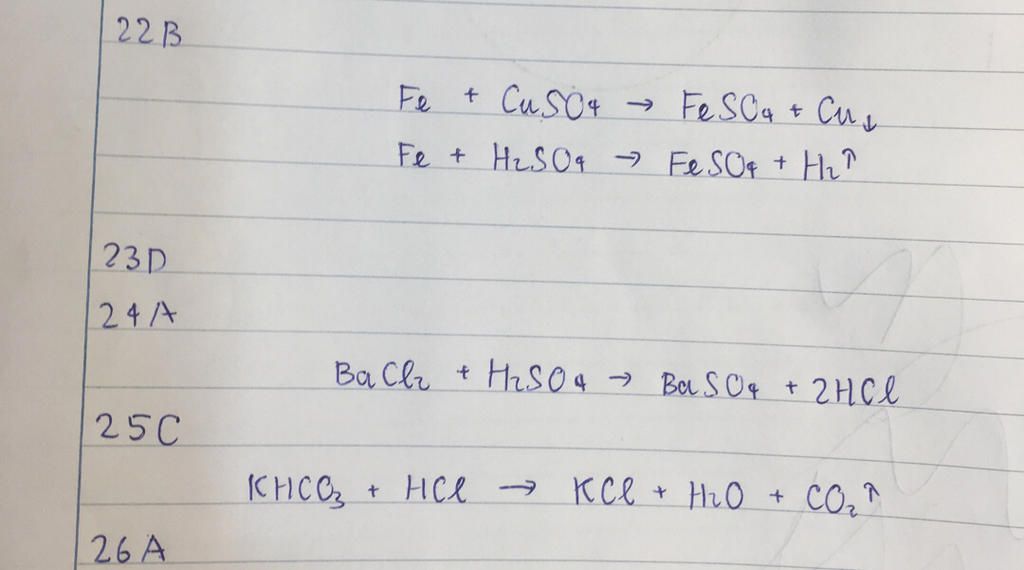 22B
Fe + CuSO4 → FeSO4 + Cu↓
Fe + H2SO4 → FeSO4 + H2↑
23D
24A
BaCl2 + H2SO4 → BaSO4 + 2HCl
25C
KHCO3 + HCl → KCl + H2O + CO2↑
26A